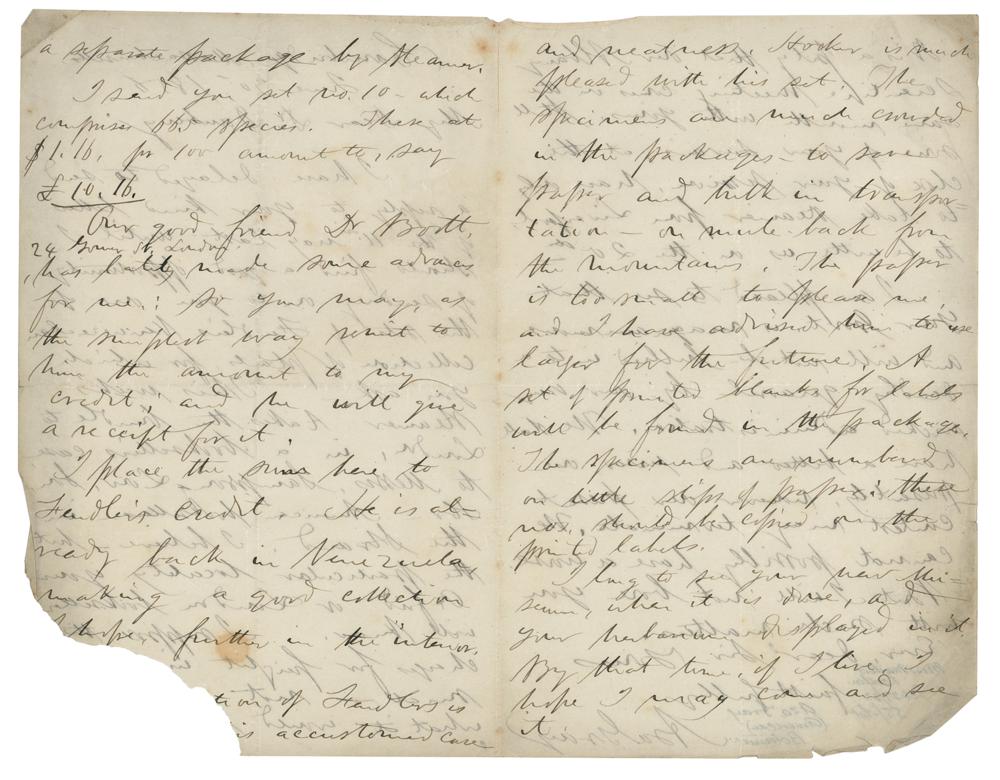 a separate package by steamer.
I send you set no. 10 – which
comprises 663 species. These at
£1.16. pr 100 amount to, say
£10.16.
Our good friend Dr Boott,
24 Gower St, London
has lately made some advances
for me: so you may, as
the simplest way remit to
him the amount to my
credit; and he will give
a receipt for it.
I place the sum here to
Fendler's credit. He is al-
ready back in Venezuela
making a good collection
I hope further in the interior.
tion of Fendler's is
is accustomed care
and neatness. Hooker is much
pleased with his set. The
specimens are much crowded
in the packages – to save
paper and bulk in transpor-
tation – on mule-back from
the mountains. The paper
is too small to please me,
and I have advised him to use
larger for the future. A
set of printed blanks for labels
will be found in the package.
The specimens are numbered
on little slips of paper: these
nos. should be copied on the
printed labels.
I long to see your new Mu-
seum, when it is done, and
your herbarium displayed in it
By that time, if I live, I
hope I may come and see
it.